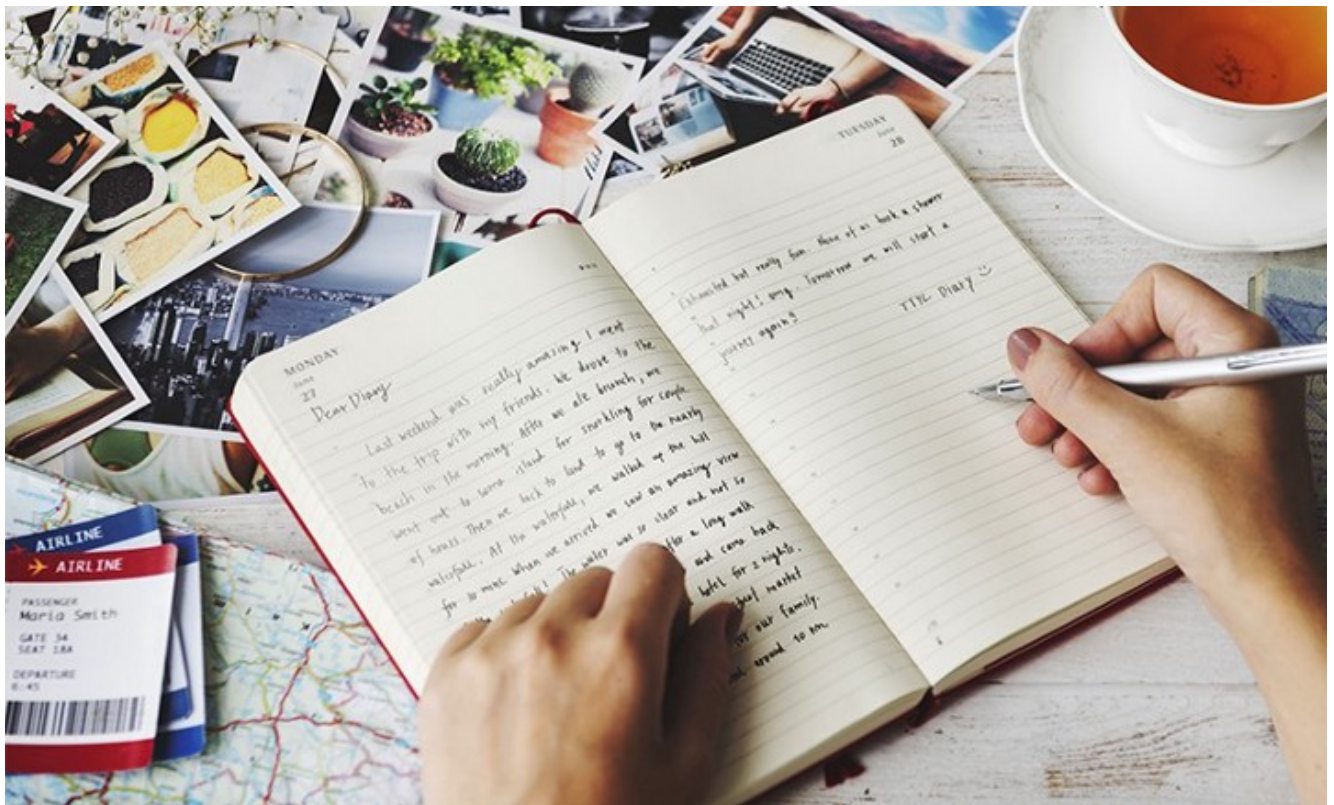 MONDAY
June
27
Dear Diary
Last weekend was really amazing I went
to the trip with my friends. We drove to the
beach in the morning. After we ate brunch, we
went out to some island for snorkling for couple
of hours. Then we back to land to go to the nearly
waterfall. At the waterfall, we walked up the hill
for 10 mins. When we arrived we saw an amazing view
The water was so clear and not so
after a long walk
and came back
hotel for 2 nights.
market
for our family.
around 10 hrs
TUESDAY
June
28
Exhausted but really fun. None of us took a shower
that night! omg. Tomorrow we will start a
journey again!!
TTYL Diary
AIRLINE
AIRLINE
PASSENGER
Maria Smith
GATE 34
SEAT 18A
DEPARTURE
6:45